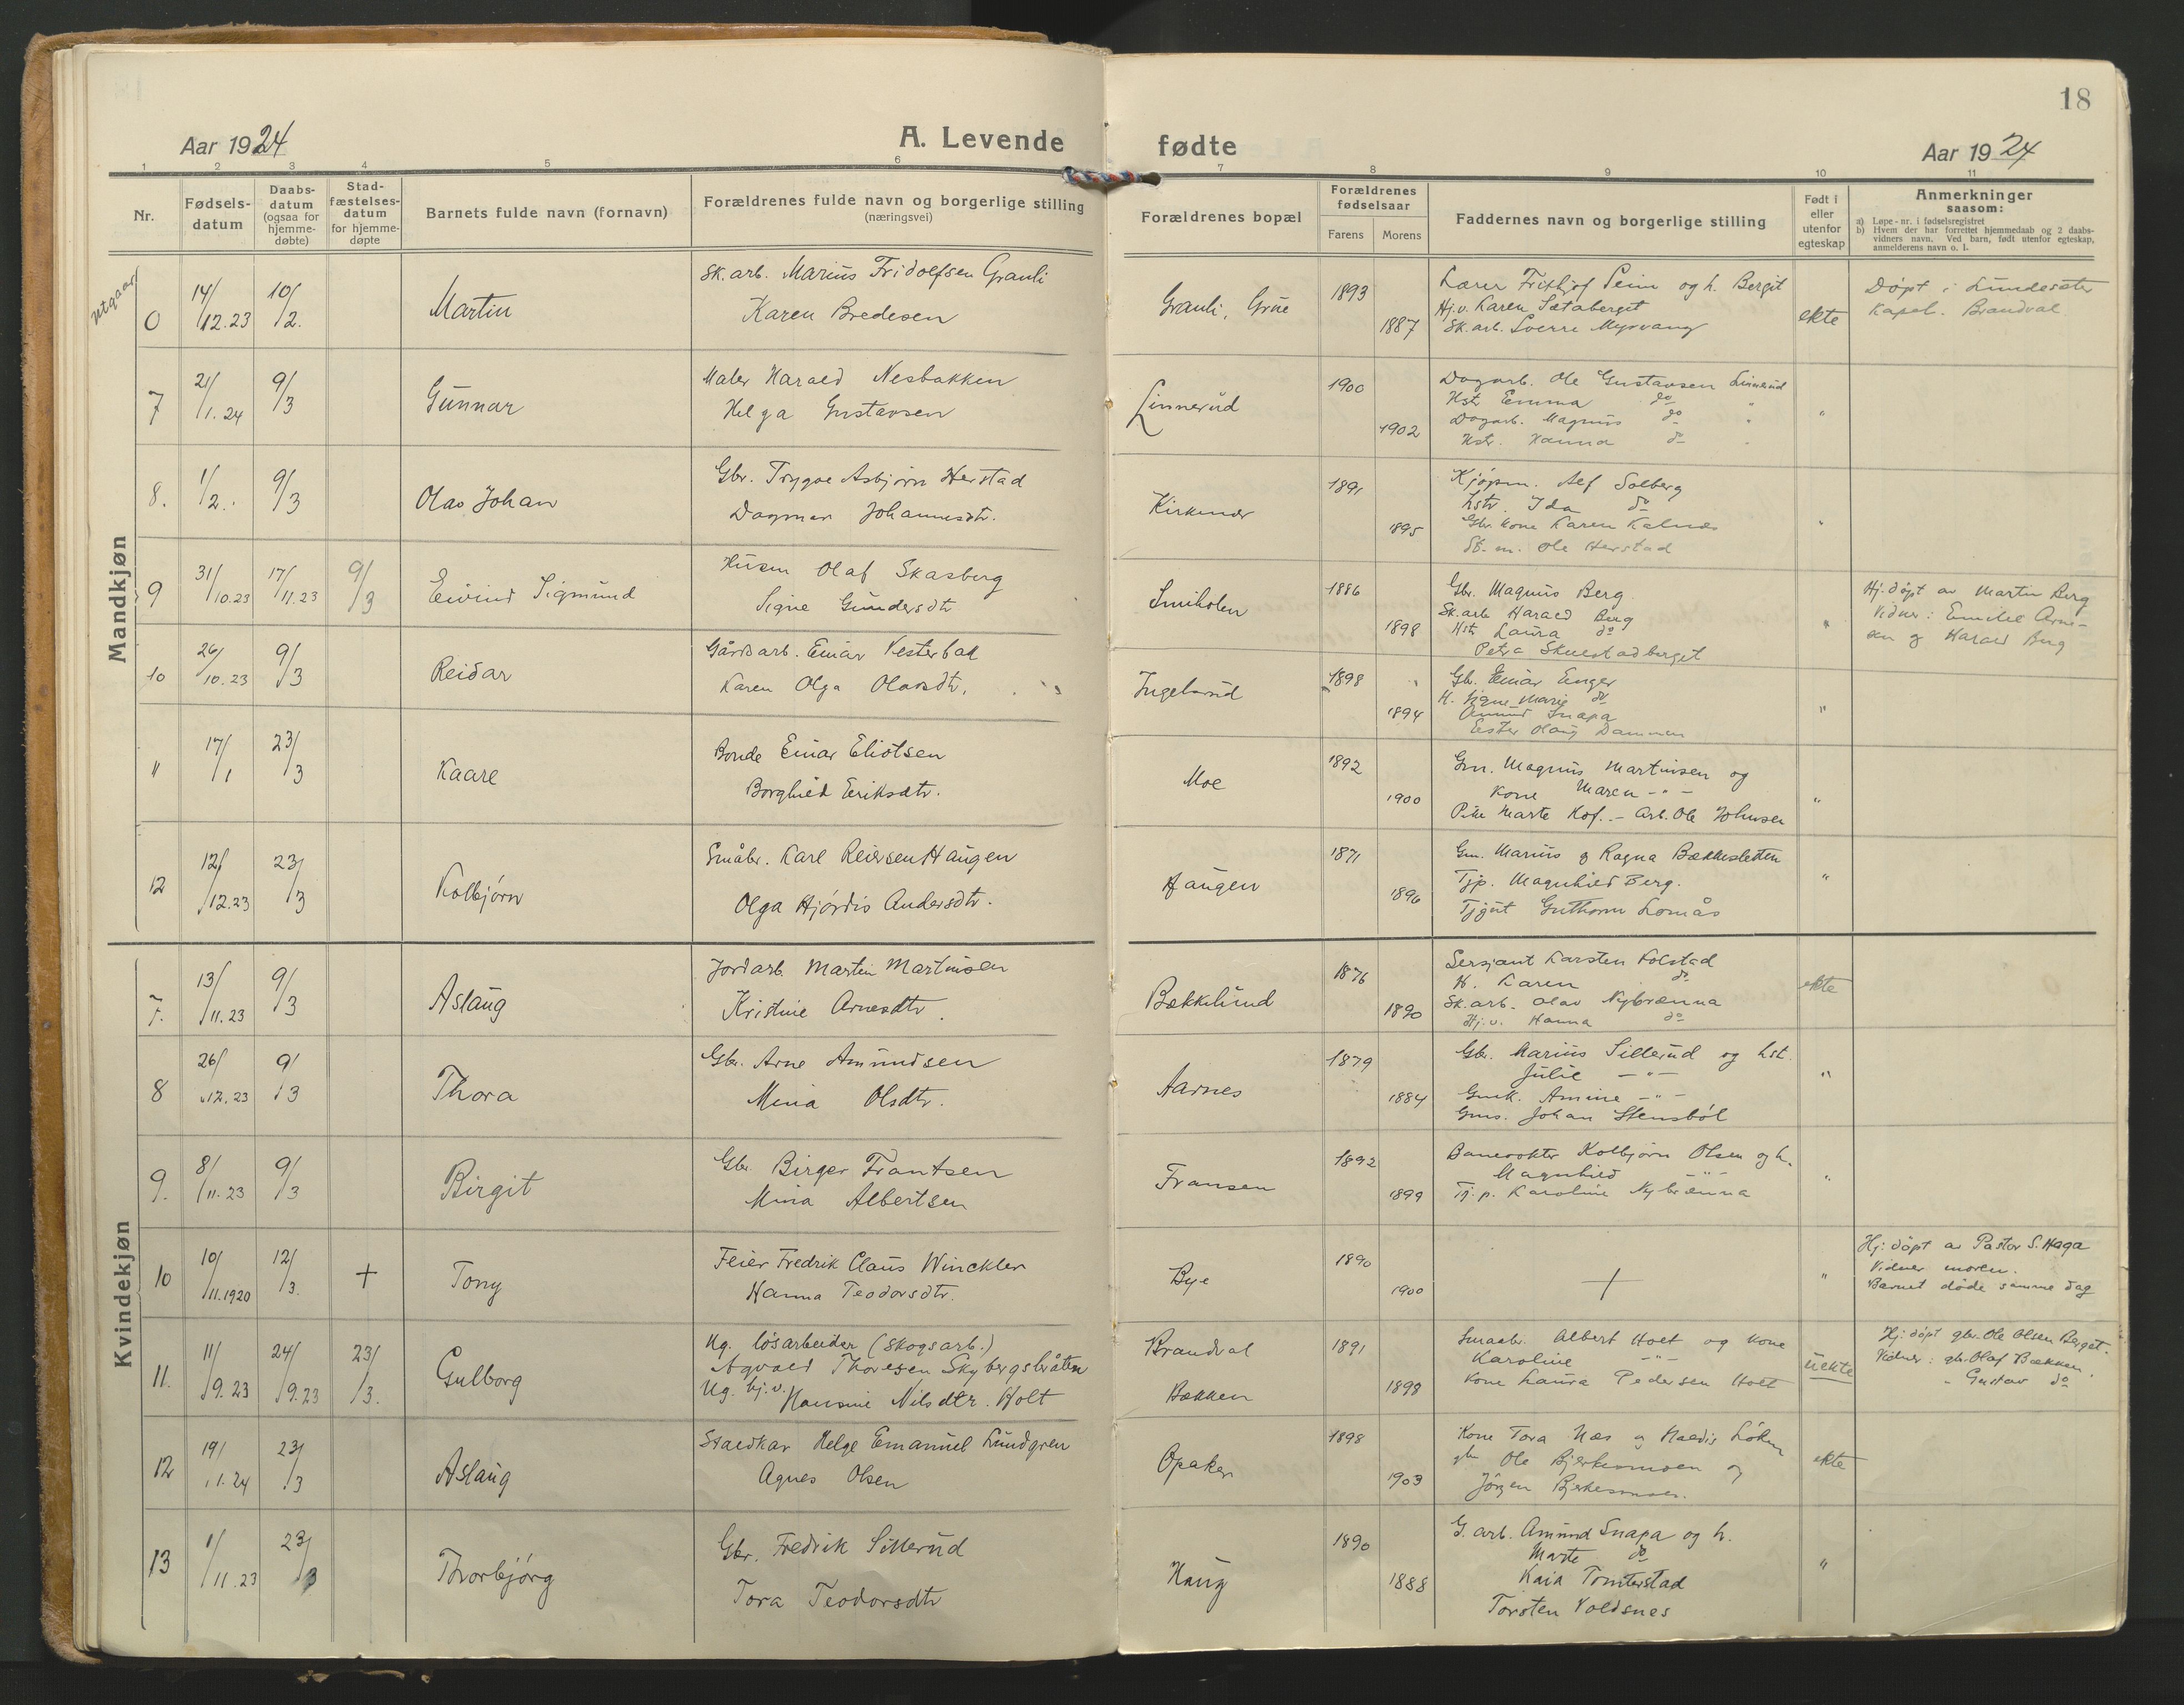 18
Aar 1924
A. Levende fødte
Aar 1924
1 2 3 4 5 6 7 8 9 10 11
Nr.
Fødsels-
datum
Daabs-
datum
(ogsaa for
hjemme-
døbte)
Stad-
fæstelses-
datum
for hjemme-
døpte
Barnets fulde navn (fornavn)
Forældrenes fulde navn og borgerlige stilling
(næringsvei)
Forældrenes bopæl
Forældrenes
fødselsaar
Farens
Morens
Faddernes navn og borgerlige stilling
Født i
eller
utenfor
egteskap
Anmerkninger
saasom:
a) Løpe-nr. i fødselsregistret
b) Hvem der har forrettet hjemmedaab og 2 daabs-
vidners navn. Ved barn, født utenfor egteskap,
anmelderens navn o. l.
Mandkjøn
utgaar
0 14/12.23 10/2. Martin
Sk.arb. Marius Fridolfsen Granli
Karen Bredesen
Granli, Grue
1893
1887
Lærer Frithjof Seim og h. Bergit
Hj.v. Karen Sætaberget
Sk.arb. Sverre Myrvang
ekte
Døpt i Lundersæter
Kapel. Brandval
7 21/1.24 9/3 Gunnar
Maler Harald Nesbakken
Helga Gustavsen
Linnerud
1900
1902
Dagarb. Ole Gustavsen Linnerud
Hst. Emma do "
Dagarb. Magnus do "
Hstr. Hanna do "
"
8. 1/2. 9/3 Olav Johan
Gbr. Trygve Asbjørn Herstad
Dagmar Johannesdtr.
Kirkenær
1891
1895
Kjøpm. Alf Solberg
Hstr. Ida do
Gbr. kone Karen Kalnæs
St. m. Ole Herstad
"
9 31/10.23 17/11.23 9/3 Eivind Sigmund
Husm Olaf Skasberg
Signe Gundersdtr
Smiholen
1886
1898
Gbr. Magnus Berg
Sk.arb Harald Berg
Hstr Laura do
Petra Skuestadberget
"
Hj. døpt av Martin Berg
Vidner: Emilie Arne-
sen og Harald Berg
10 26/10.23 9/3 Reidar
Gårdsarb. Einar Vesterbal
Karen Olga Olavsdtr.
Ingelsrud
1898
1894
Gb. Einar Enger
H. Signe Marie do
Amund Snapa
Ester Olaug Dammen
"
11 17/1 23/3 Kaare
Bonde Einar Eliotsen
Borghild Eriksdtr.
Moe
1892
1900
Gm. Magnus Martinsen og
Kone Maren - " -
Pike Marte Kof. - Arb. Ole Johnsen
"
12 12/12.23 23/3 Kolbjørn
Småbr. Karl Reiersen Haugen
Olga Hjørdis Andersdtr.
Haugen
1871
1896
Gm. Marius og Ragna Bækkesletten
Tjp. Magnhild Berg.
Tjgut Guthorm Lomås
"
Kvindekjøn
7. 13/11.23 9/3 Aslaug
Jordarb. Martin Martinsen
Kristine Arnesdtr.
Bækkelund
1876
1890
Sersjant Karsten Kolstad
H. Karen do
Sk.arb. Olav Nybrenna
Hj.v. Hanna do
ekte
8 26/12.23 9/3 Thora
Gbr. Arne Amundsen
Mina Olsdtr.
Aarnes
1879
1884
Gbr. Marius Sillerud og hst.
Julie - " -
Gmk. Amine - " -
Gms. Johan Stensbøl
"
9. 8/11.23 9/3 Birgit
Gbr. Birger Frantsen
Mina Albertsen
Fransen
1892
1899
Banevokter Kolbjørn Olsen og h.
Magnhild - " -
Tj.p. Karoline Nybrænna
"
10 10/11.1920 12/3. + Tony
Feier Fredrik Claus Winckler
Hanna Teodorsdtr.
Bye
1890
1900
+
"
Hj. døpt av Pastor S. Haga
Vidner moren.
Barnet døde samme dag
11. 11/9.23 24/9.23 23/3. Gulborg
Ug. løsarbeider (skogsarb.)
Agvald Thoresen Skybergsbråten
Ug. hj.v. Hansine Nilsdtr. Holt
Brandval
Bækken
1891
1898
Smaabr. Albert Holt og kone
Karoline - " -
Kone Laura Pedersen Holt
uekte
Hj. døpt gbr. Ole Olsen Berget.
Vidner: gb. Olaf Bækken,
" Gustav do
12 19/1.24 23/3 Aslaug
Staldkar Helge Emanuel Lundgren
Agnes Olsen
Opaker
1898
1903
Kone Tora Næs og Haldis Løken
gbr Ole Bjerkesmoen og
Jørgen Bjerkesmoen.
ekte
13 1/11.23 23/3 Thorbjørg
Gbr. Fredrik Sillerud
Tora Teodorsdtr
Haug
1890
1888
G.arb. Amund Snapa og h.
Marte do
Kaia Tomterstad
Torsten Voldsnes
"